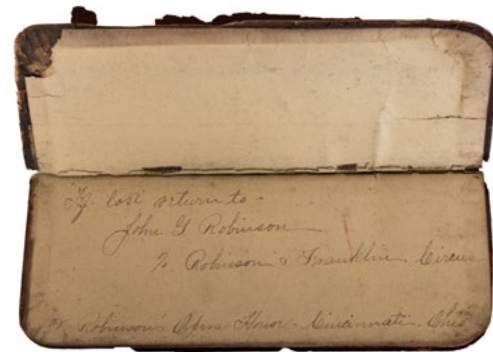 If lost return to -
John G Robinson
℅ Robinson & Franklin Circus
or Robinson's Opera House - Cincinnati - Ohio